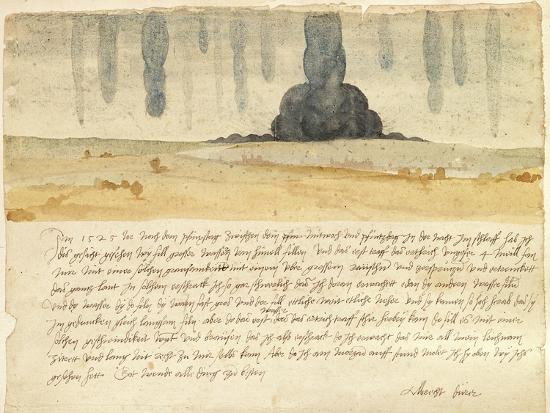 Im 1525 Jor nach dem pfinxstag zwischen dem mitwoch und pfintzdag in der nacht im schlaff hab ich
dis gesicht gesehen wy fill grosser wassern vom himell fillen Und das erst traff das erthrich ungefer 4 meill fan
mir mit einer solchen grausamkeitt mit einem uber grossem raüschn und zersprützn und ertrenckett
das gantz lant In solchem erschrack ich so gar schwerlich das ich doran erwachett e dan dy andern wasser filn
Und dy wasser dy do filn dy warn fast gros und der fill ettliche weit etliche neher und sy kamen so hoch herab das sy
im gedancken gleich langsam filn aber do das erst wasser das das erthrich traff schir herbey kam do fill es mit einer
solchen geschwindikeit wynt und braüsen das ich also erschrack do ich erwacht das mir all mein leichnam
zitrett und lang nit recht zu mir selbs kam Aber do ich am morgn auff stund molet ich hy oben wy ichs
gesehen hett Got wende alle ding zu besten
Albrecht dürer